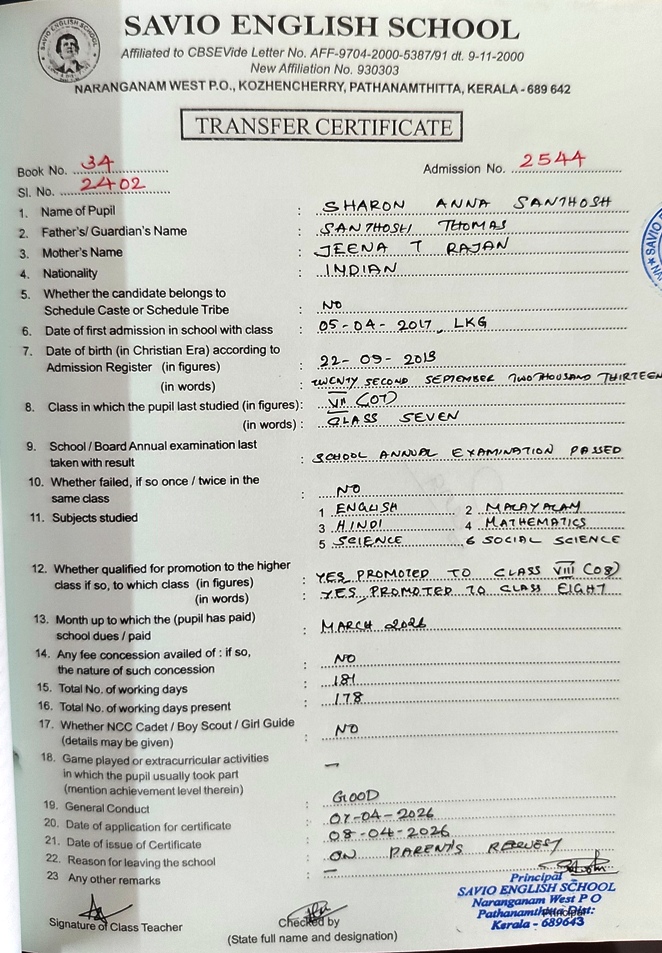 SAVIO ENGLISH SCHOOL
Affiliated to CBSEVide Letter No. AFF-9704-2000-5387/91 dt. 9-11-2000
New Affiliation No. 930303
NARANGANAM WEST P.O., KOZHENCHERRY, PATHANAMTHITTA, KERALA - 689 642
TRANSFER CERTIFICATE
Book No. 34
Admission No. 2544
Sl. No. 2402
1. Name of Pupil : SHARON ANNA SANTHOSH
2. Father's/ Guardian's Name : SANTHOSH THOMAS
3. Mother's Name : JEENA T RAJAN
4. Nationality : INDIAN
5. Whether the candidate belongs to
Schedule Caste or Schedule Tribe : NO
6. Date of first admission in school with class : 05-04-2017, LKG
7. Date of birth (in Christian Era) according to
Admission Register (in figures) : 22-09-2013
(in words) : TWENTY SECOND SEPTEMBER TWO THOUSAND THIRTEEN
8. Class in which the pupil last studied (in figures): VII (07)
(in words) : CLASS SEVEN
9. School / Board Annual examination last
taken with result : SCHOOL ANNUAL EXAMINATION PASSED
10. Whether failed, if so once / twice in the
same class : NO
11. Subjects studied 1 ENGLISH 2 MALAYALAM
3 HINDI 4 MATHEMATICS
5 SCIENCE 6 SOCIAL SCIENCE
12. Whether qualified for promotion to the higher
class if so, to which class (in figures) : YES, PROMOTED TO CLASS VIII (08)
(in words) : YES, PROMOTED TO CLASS EIGHT
13. Month up to which the (pupil has paid)
school dues / paid : MARCH 2026
14. Any fee concession availed of : if so,
the nature of such concession : NO
15. Total No. of working days : 181
16. Total No. of working days present : 178
17. Whether NCC Cadet / Boy Scout / Girl Guide
(details may be given) : NO
18. Game played or extracurricular activities
in which the pupil usually took part
(mention achievement level therein) : —
19. General Conduct : GOOD
20. Date of application for certificate : 07-04-2026
21. Date of issue of Certificate : 08-04-2026
22. Reason for leaving the school : ON PARENT'S REQUEST
23 Any other remarks : —
Signature of Class Teacher
Checked by
(State full name and designation)
Principal
SAVIO ENGLISH SCHOOL
Naranganam West P O
Pathanamthitta Dist:
Kerala - 689643